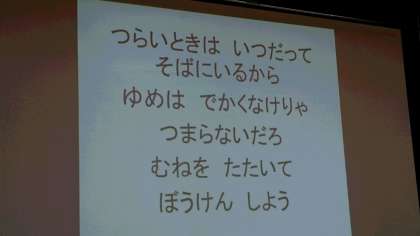 つらいときは いつだって
そばにいるから
ゆめは でかくなけりゃ
つまらないだろ
むねを たたいて
ぼうけん しよう